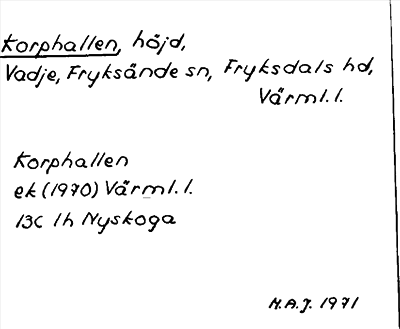 Korphallen, höjd,
Vadje, Fryksände sn, Fryksdals hd,
Värml. l.
Korphallen
ek (1970) Värml. l.
13C 1h Nyskoga
H.A.J. 1971